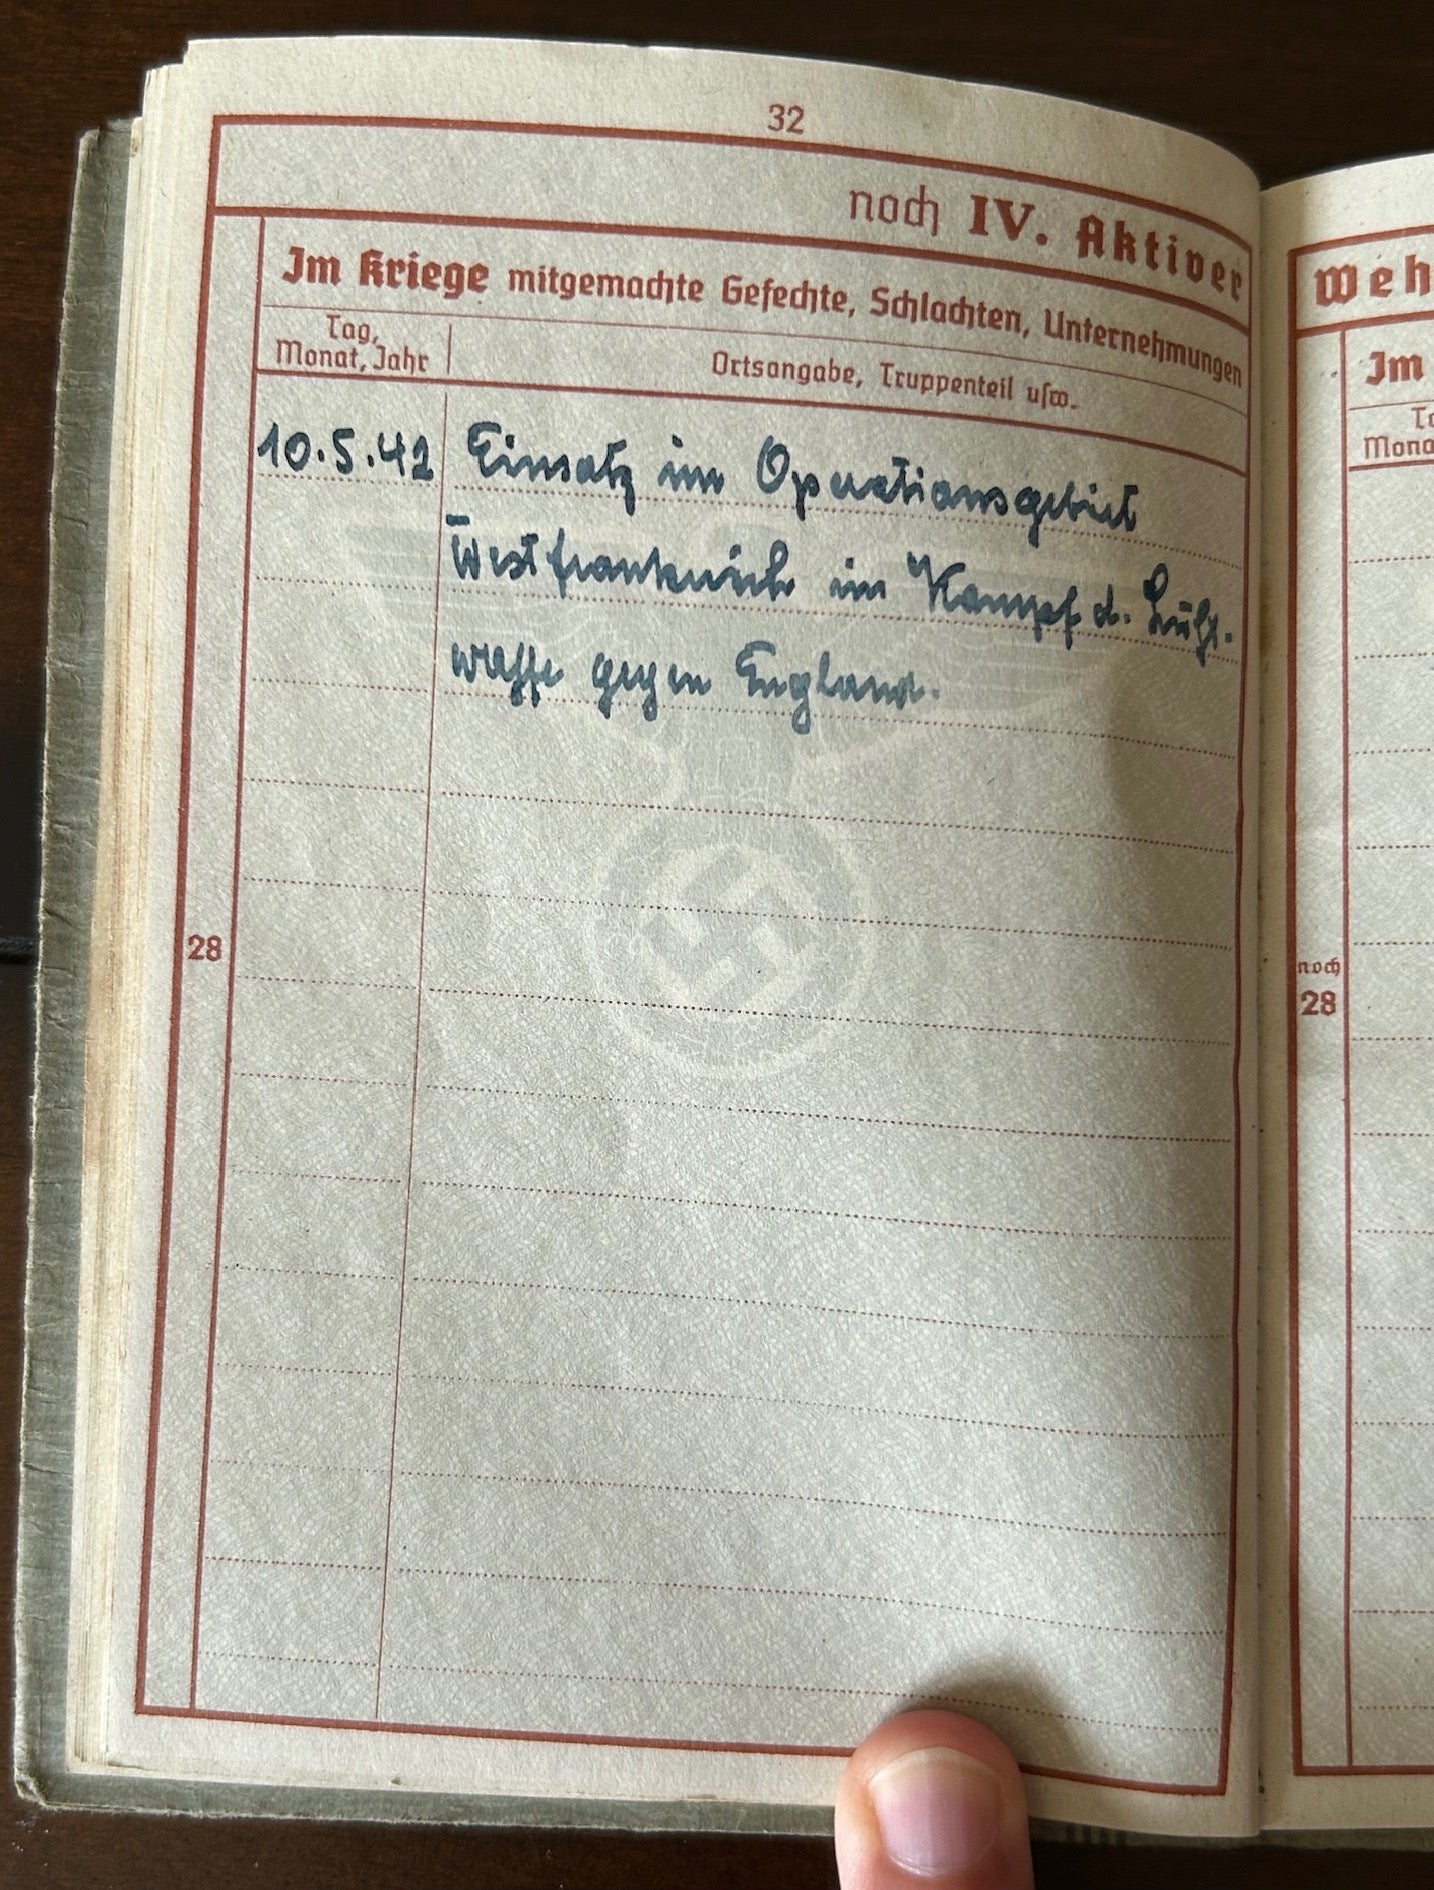 32
noch IV. Aktiver
Im Kriege mitgemachte Gefechte, Schlachten, Unternehmungen
Tag,
Monat, Jahr
Ortsangabe, Truppenteil usw.
10.5.42 Einsatz im Operationsgebiet
Westfrankreich im Kampf d. Luft-
waffe gegen England.
28
Weh
Im
Ta
Mona
noch
28